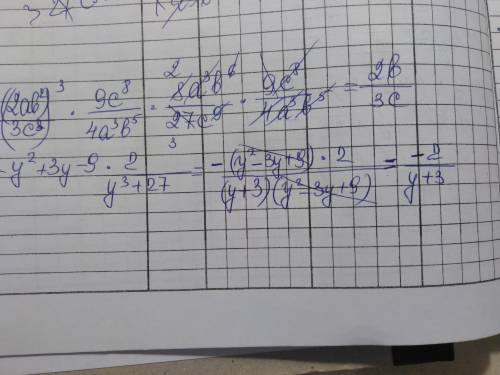 (2ab²/3c³)³ · 9c⁸/4a³b⁵ · 8a³b⁶/27c⁹ · 9c⁸/4a³b⁵ = 2b/3c
2
3
-y²+3y-9 · 2/y³+27 = -(y²-3y+9) · 2/(y+3)(y²-3y+9) = -2/y+3